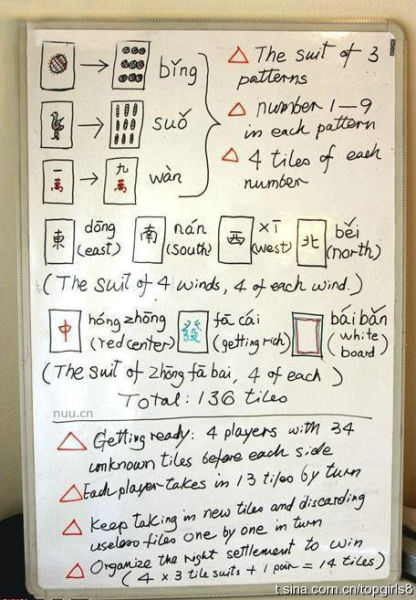 → bǐng
→ suǒ
一萬 → 九萬 wàn
△ The suit of 3
patterns
△ number 1—9
in each pattern
△ 4 tiles of each
number
東 dōng (east) 南 nán (south) 西 xī (west) 北 běi (north)
(The suit of 4 winds, 4 of each wind.)
中 hóng zhōng (red center) 發 fā cái (getting rich) bái bǎn (white board)
(The suit of zhōng fā bai, 4 of each)
Total: 136 tiles
nuu.cn
△ Getting ready: 4 players with 34
unknown tiles before each side
△ Each player takes in 13 tiles by turn
△ Keep taking in new tiles and discarding
useless tiles one by one in turn
△ Organize the right settlement to win
(4 × 3 tile suits + 1 pair = 14 tiles)
t.sina.com.cn/topgirls8